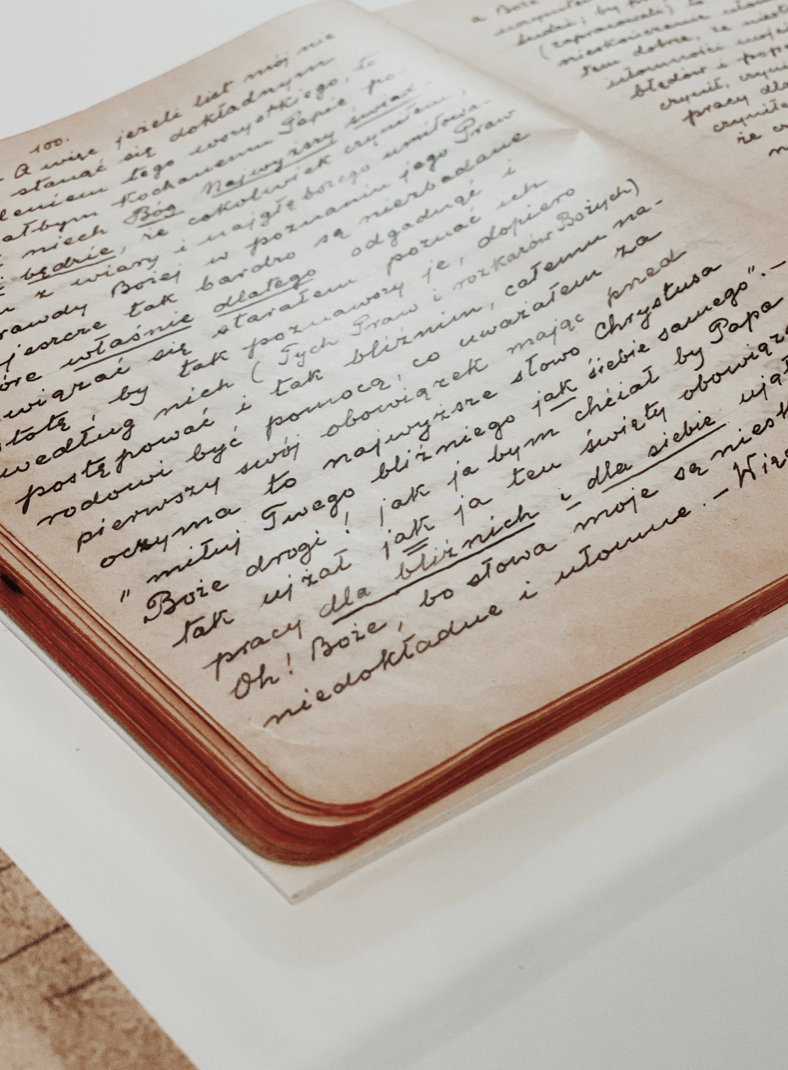 100.
- A więc jeżeli list mój nie
stanąć się dokładnym
leniem tego wszystkiego, to
ałbym Kochanemu Papie po-
niech Bóg Najwyższy świad-
będzie, że cokolwiek czyniłem,
z wiary i najgłębszego umiłowa-
rawdy Bożej w poznaniu jego Praw
jeszcze tak bardzo są niezbadane
óre właśnie dlatego odgadnąć i
wiązać się starałem poznać ich
totę, by tak poznawszy je, dopiero
według nich (Tych Praw i rozkazów Bożych)
postępować i tak bliźnim, całemu na-
rodowi być pomocą, co uważałem za
pierwszy swój obowiązek mając pred
oczyma to najwyższe słowo Chrystusa
"miłuj Twego bliźniego jak siebie samego". -
Boże drogi! jak ja bym chciał by Papa
tak ujżał jak ja ten święty obowiąz
pracy dla bliźnich i dla siebie ująć
Oh! Boże, bo słowa moje są niest
niedokładne i ułomne. - Więc
a Boże
(zapracować)
nieskończenie
ten dobre, że
ułomności moje
błędów i pop
czynił, czyni
pracy dla
czyniłe
że cz